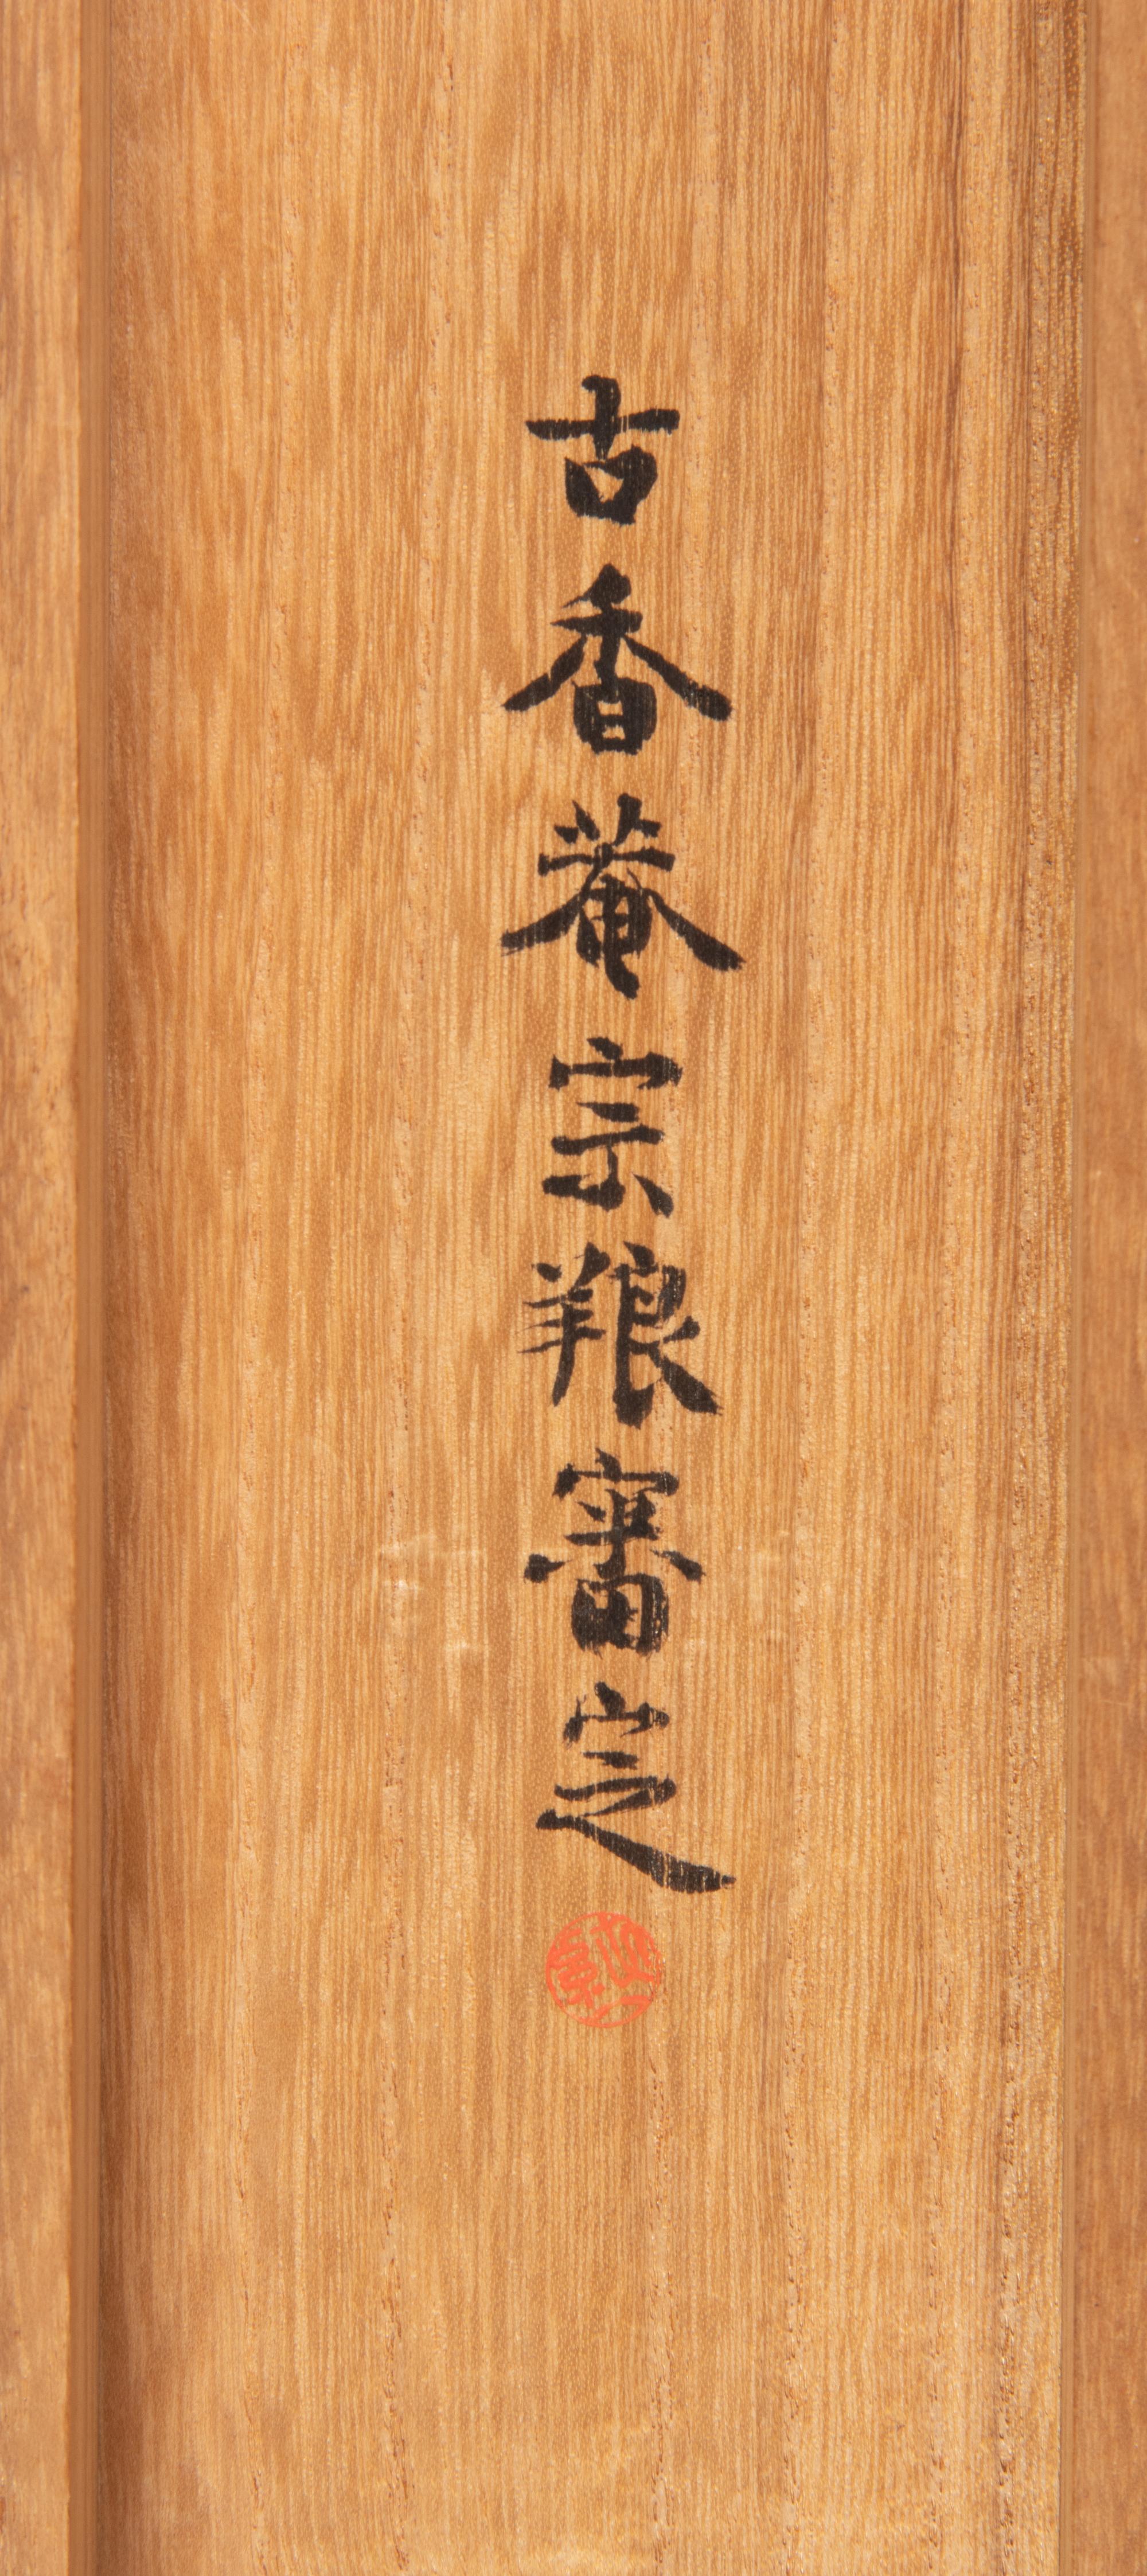 古香菴宗審定